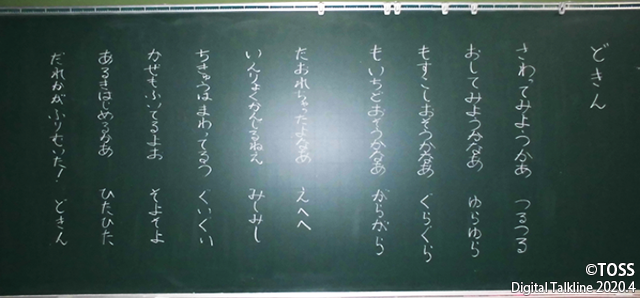 どきん
さわってみようかなあ　つるつる
おしてみようかなあ　ゆらゆら
もすこしおそうかなあ　ぐらぐら
もいちどおそうかなあ　がらがら
たおれちゃったよなあ　えへへ
いんりょくかんじるねえ　みしみし
ちきゅうはまわってるう　ぐいぐい
かぜもふいてるよお　そよそよ
あるきはじめるかあ　ひたひた
だれかがふりむいた！　どきん
©TOSS
Digital Talkline 2020.4